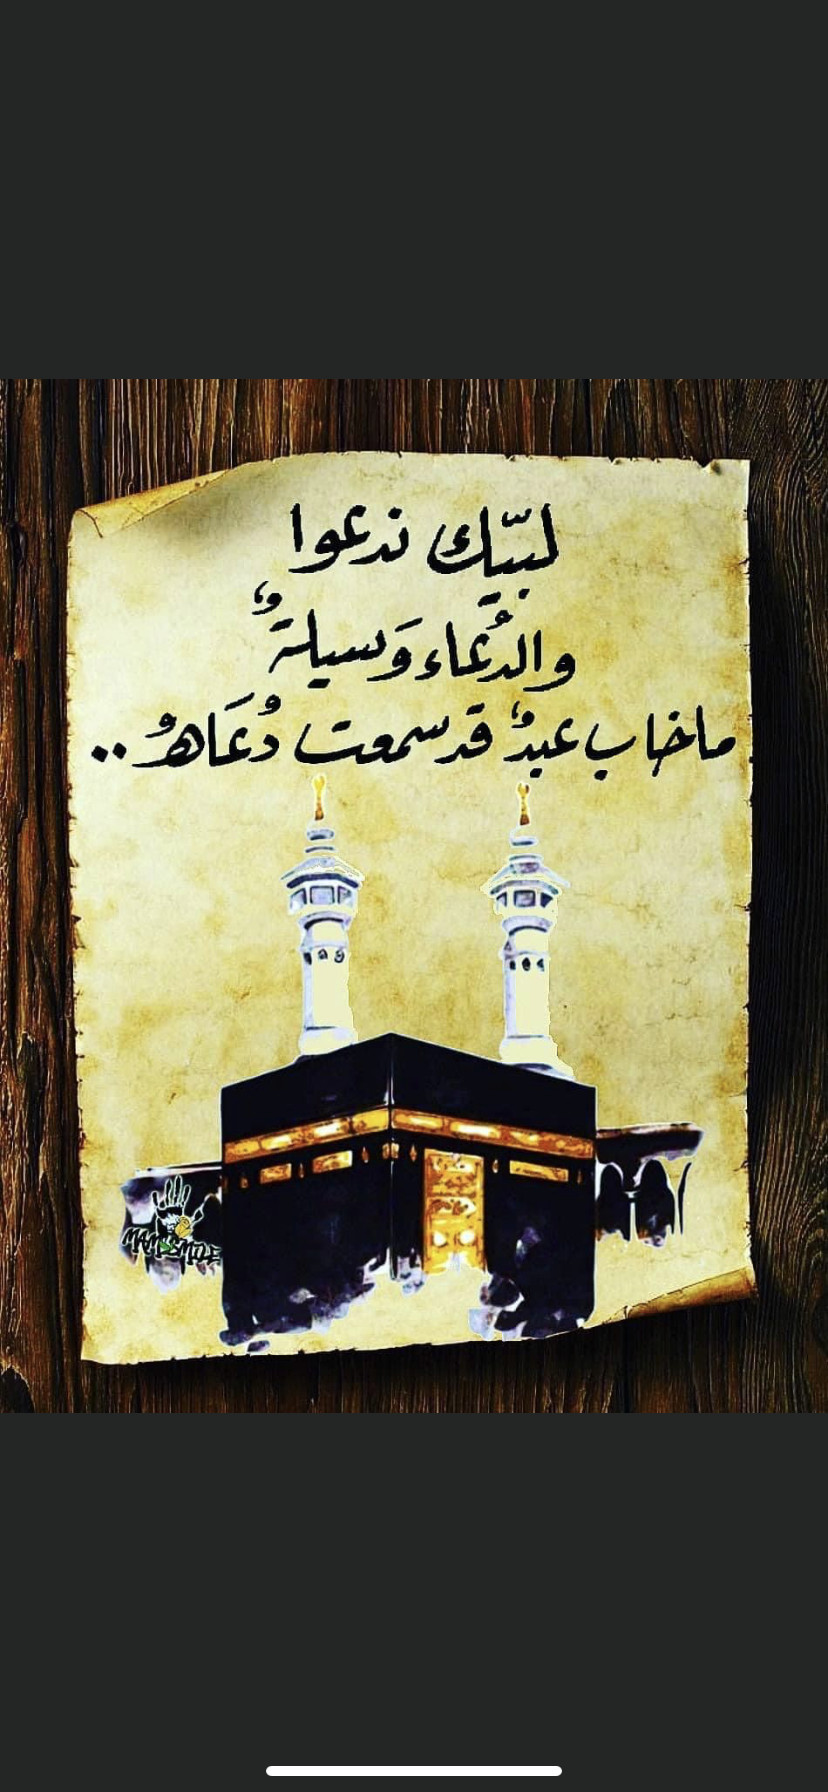 لبيّك ندعوا
والدُعاء وَسيلةٌ
ماخاب عبدٌ قد سمعت دُعَاهُ..
MAN SMILE